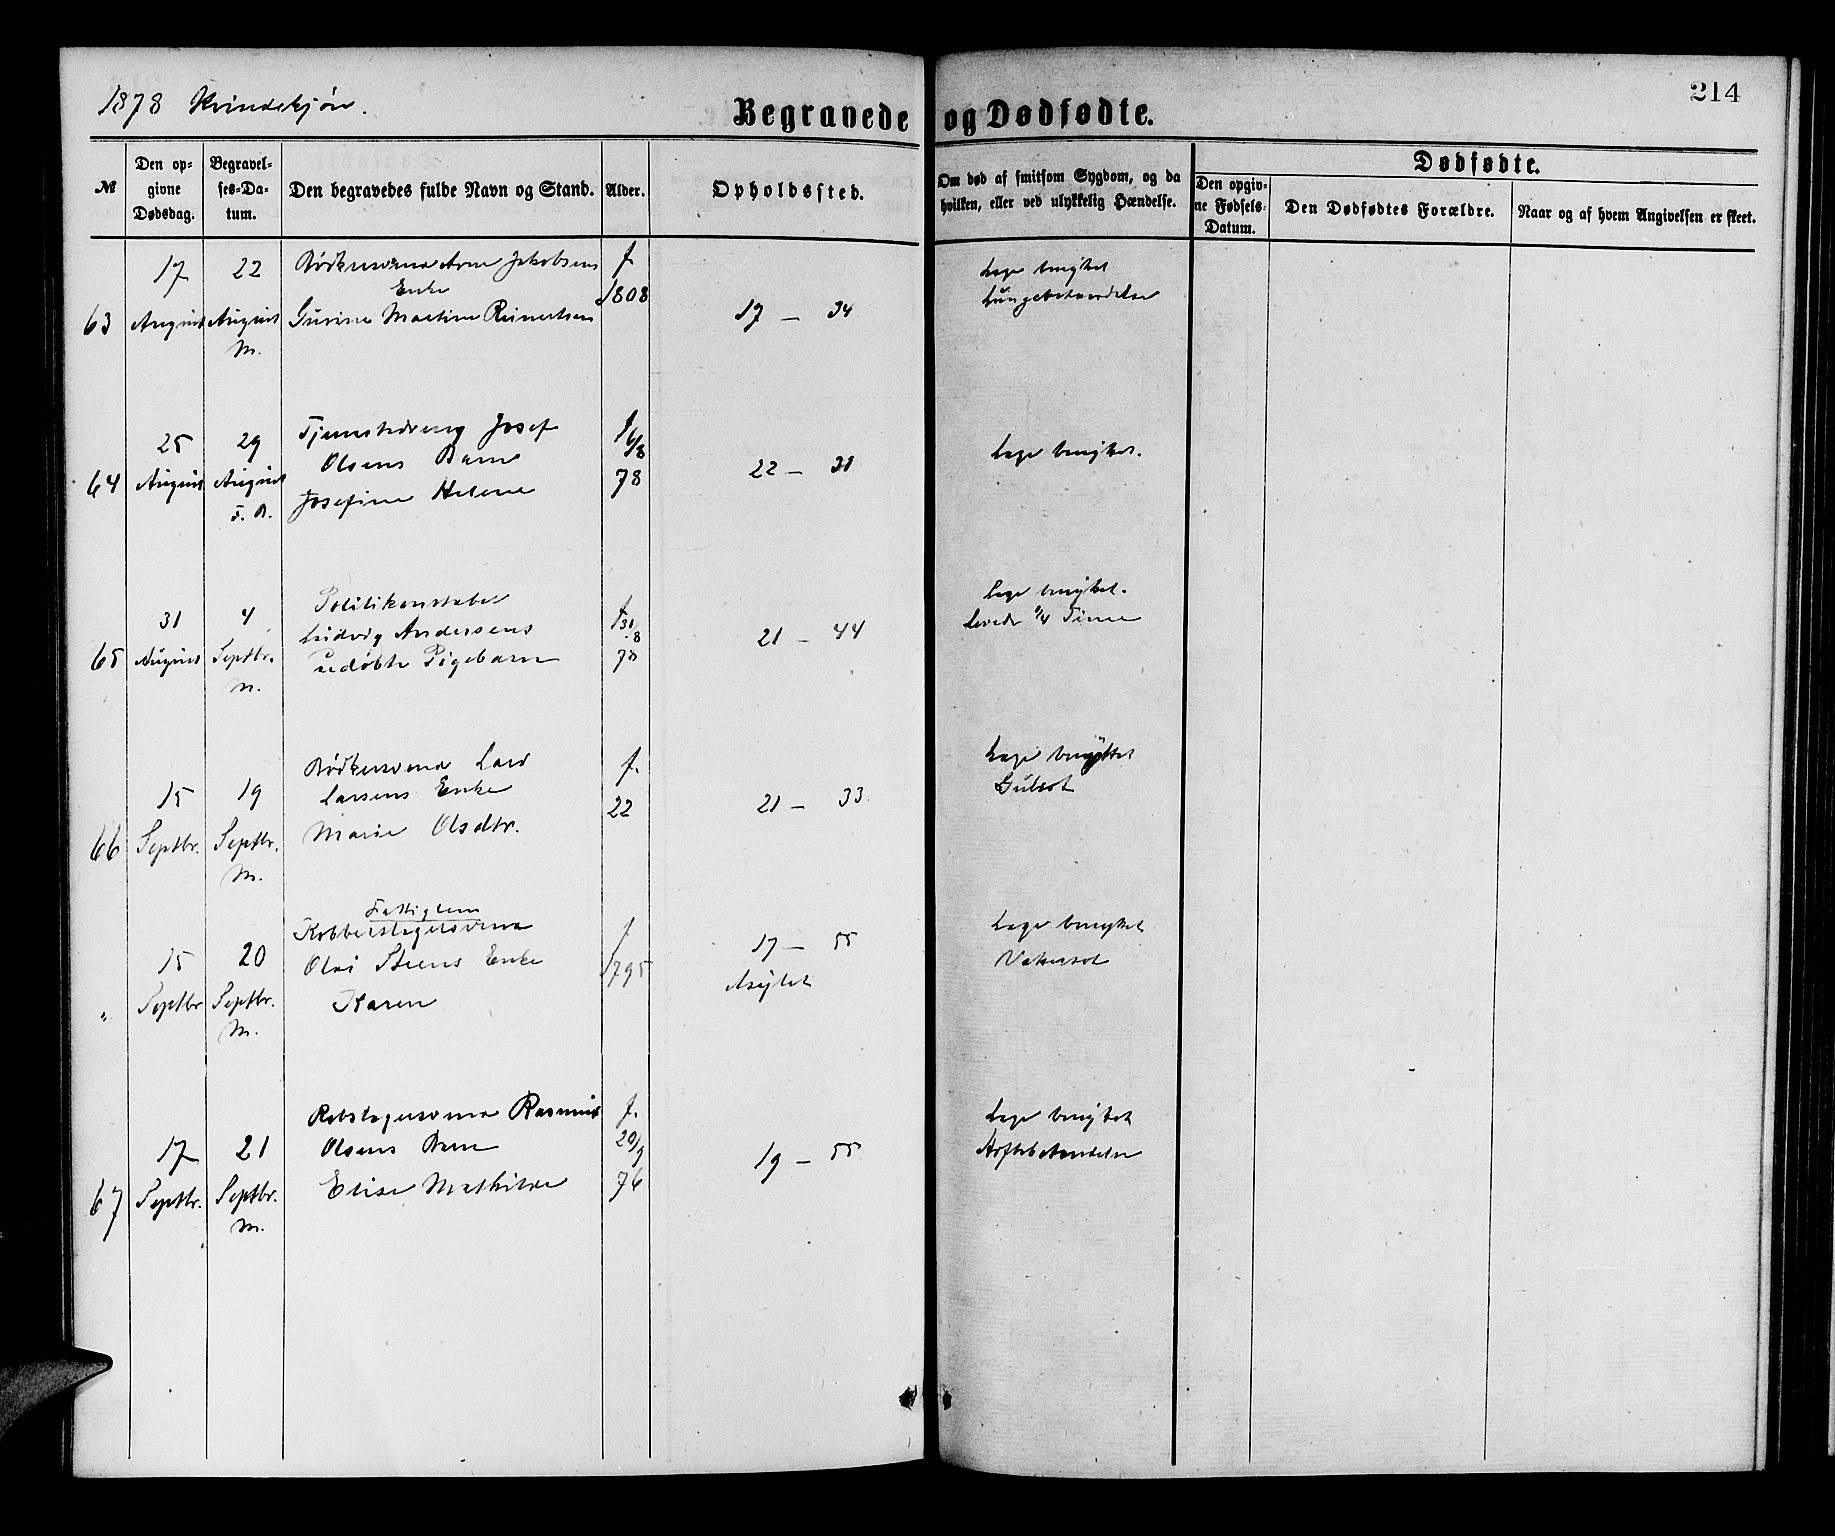 1878 Kvindekjøn.
Begravede og Dødfødte.
214
№
Den opgivne Dødsdag.
Begravelses-Datum.
Den begravedes fulde Navn og Stand.
Alder.
Opholdssted.
Om død af smitsom Sygdom, og da hvilken, eller ved ulykkelig Hændelse.
Dødfødte.
Den opgivne Fødsels-Datum.
Den Dødfødtes Forældre.
Naar og af hvem Angivelsen er skeet.
63
17 August
22 August M.
Bødkersvend Arne Jakobsens
Enke
Gurine Martine Reinertsen
f. 1808
17 – 34
Læge benyttet
Lungebetændelse
64
25 August
29 August F. A.
Tjenestedreng Josef
Olsens Barn
Josefine Helene
f. 6/8 78
22 – 21
Læge benyttet.
65
31 August
4 Septbr. M.
Politikonstabel
Ludvig Andersens
udøbte Pigebarn
f. 31/8 78
21 – 44
Læge benyttet.
Levede 1/4 Time
66
15 Septbr.
19 Septbr. M.
Bødkersvend Lars
Larsens Enke
Marie Olsdtr.
f. 22
21 – 33
Læge benyttet
Gulsot
"
15 Septbr
20 Septbr. M.
Fattiglem
Kobberslagersvend
Olai Steens Enke
Karen
f 1795
17 – 55
Asylet
Læge benyttet
Vatersot
67
17 Septbr.
21 Septbr. M.
Rebslagersvend Rasmus
Olsens Barn
Elise Mathilde
f. 20/9 76
19 – 55
Læge benyttet